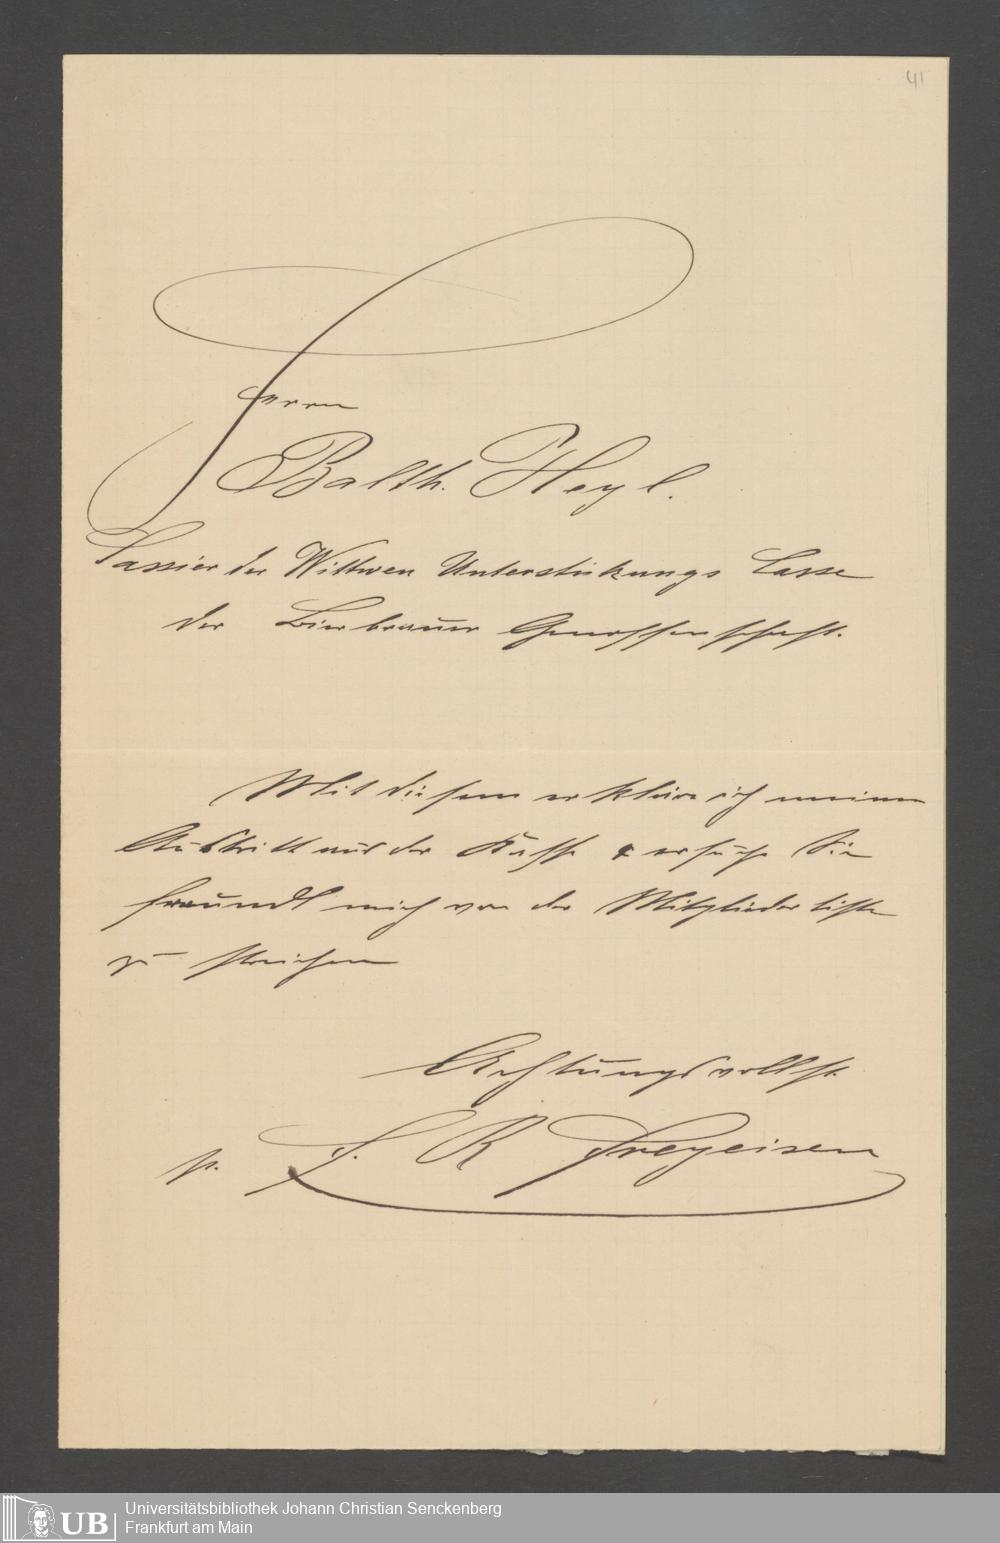 41
Herrn
Balth. Heyl.
Cassier der Wittwen Unterstützungs Casse
der Bierbrauer Genossenschaft.
Mit diesem erkläre ich meinen
Austritt aus der Kasse & ersuche Sie
freundl mich von der Mitgliederliste
zu streichen
Achtungsvollst.
p. J. R Freyeisen
UB
Universitätsbibliothek Johann Christian Senckenberg
Frankfurt am Main